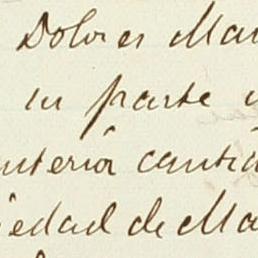 Dolores Mar
su parte
anterior cantid
iedad de Ma